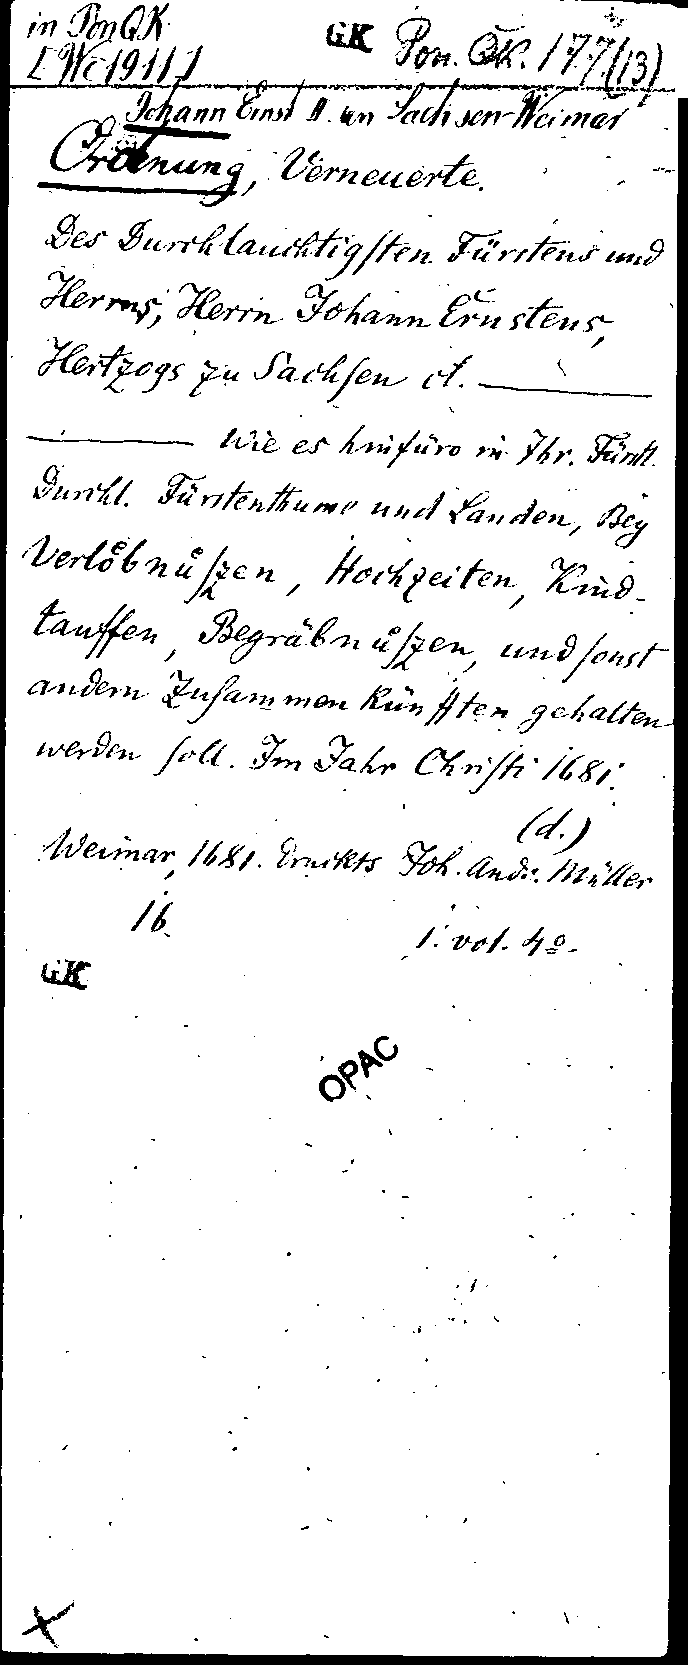 in Pon QK
[Wc 1911]
GK Pon. QK. 177(13)
Johann Ernst II. von Sachsen-Weimar
Ordnung, Verneuerte.
Des Durchlauchtigſten Fürstens und
Herrns, Herrn Johann Ernstens,
Hertzogs zu Sachſen ct. ———
——— wie es hinfüro in Ihr. Fürstl.
Durchl. Fürstenthume und Landen, Bey
Verlöbnüſzen, Hochzeiten, Kind-
tauffen, Begräbnüſzen, und ſonst
andern Zuſammenkünfften gehalten
werden ſoll. Im Jahr Chriſti 1681.
(d.)
Weimar, 1681. Druckts Joh. Andr. Müller
16.
1. vol. 4º.
GK
OPAC